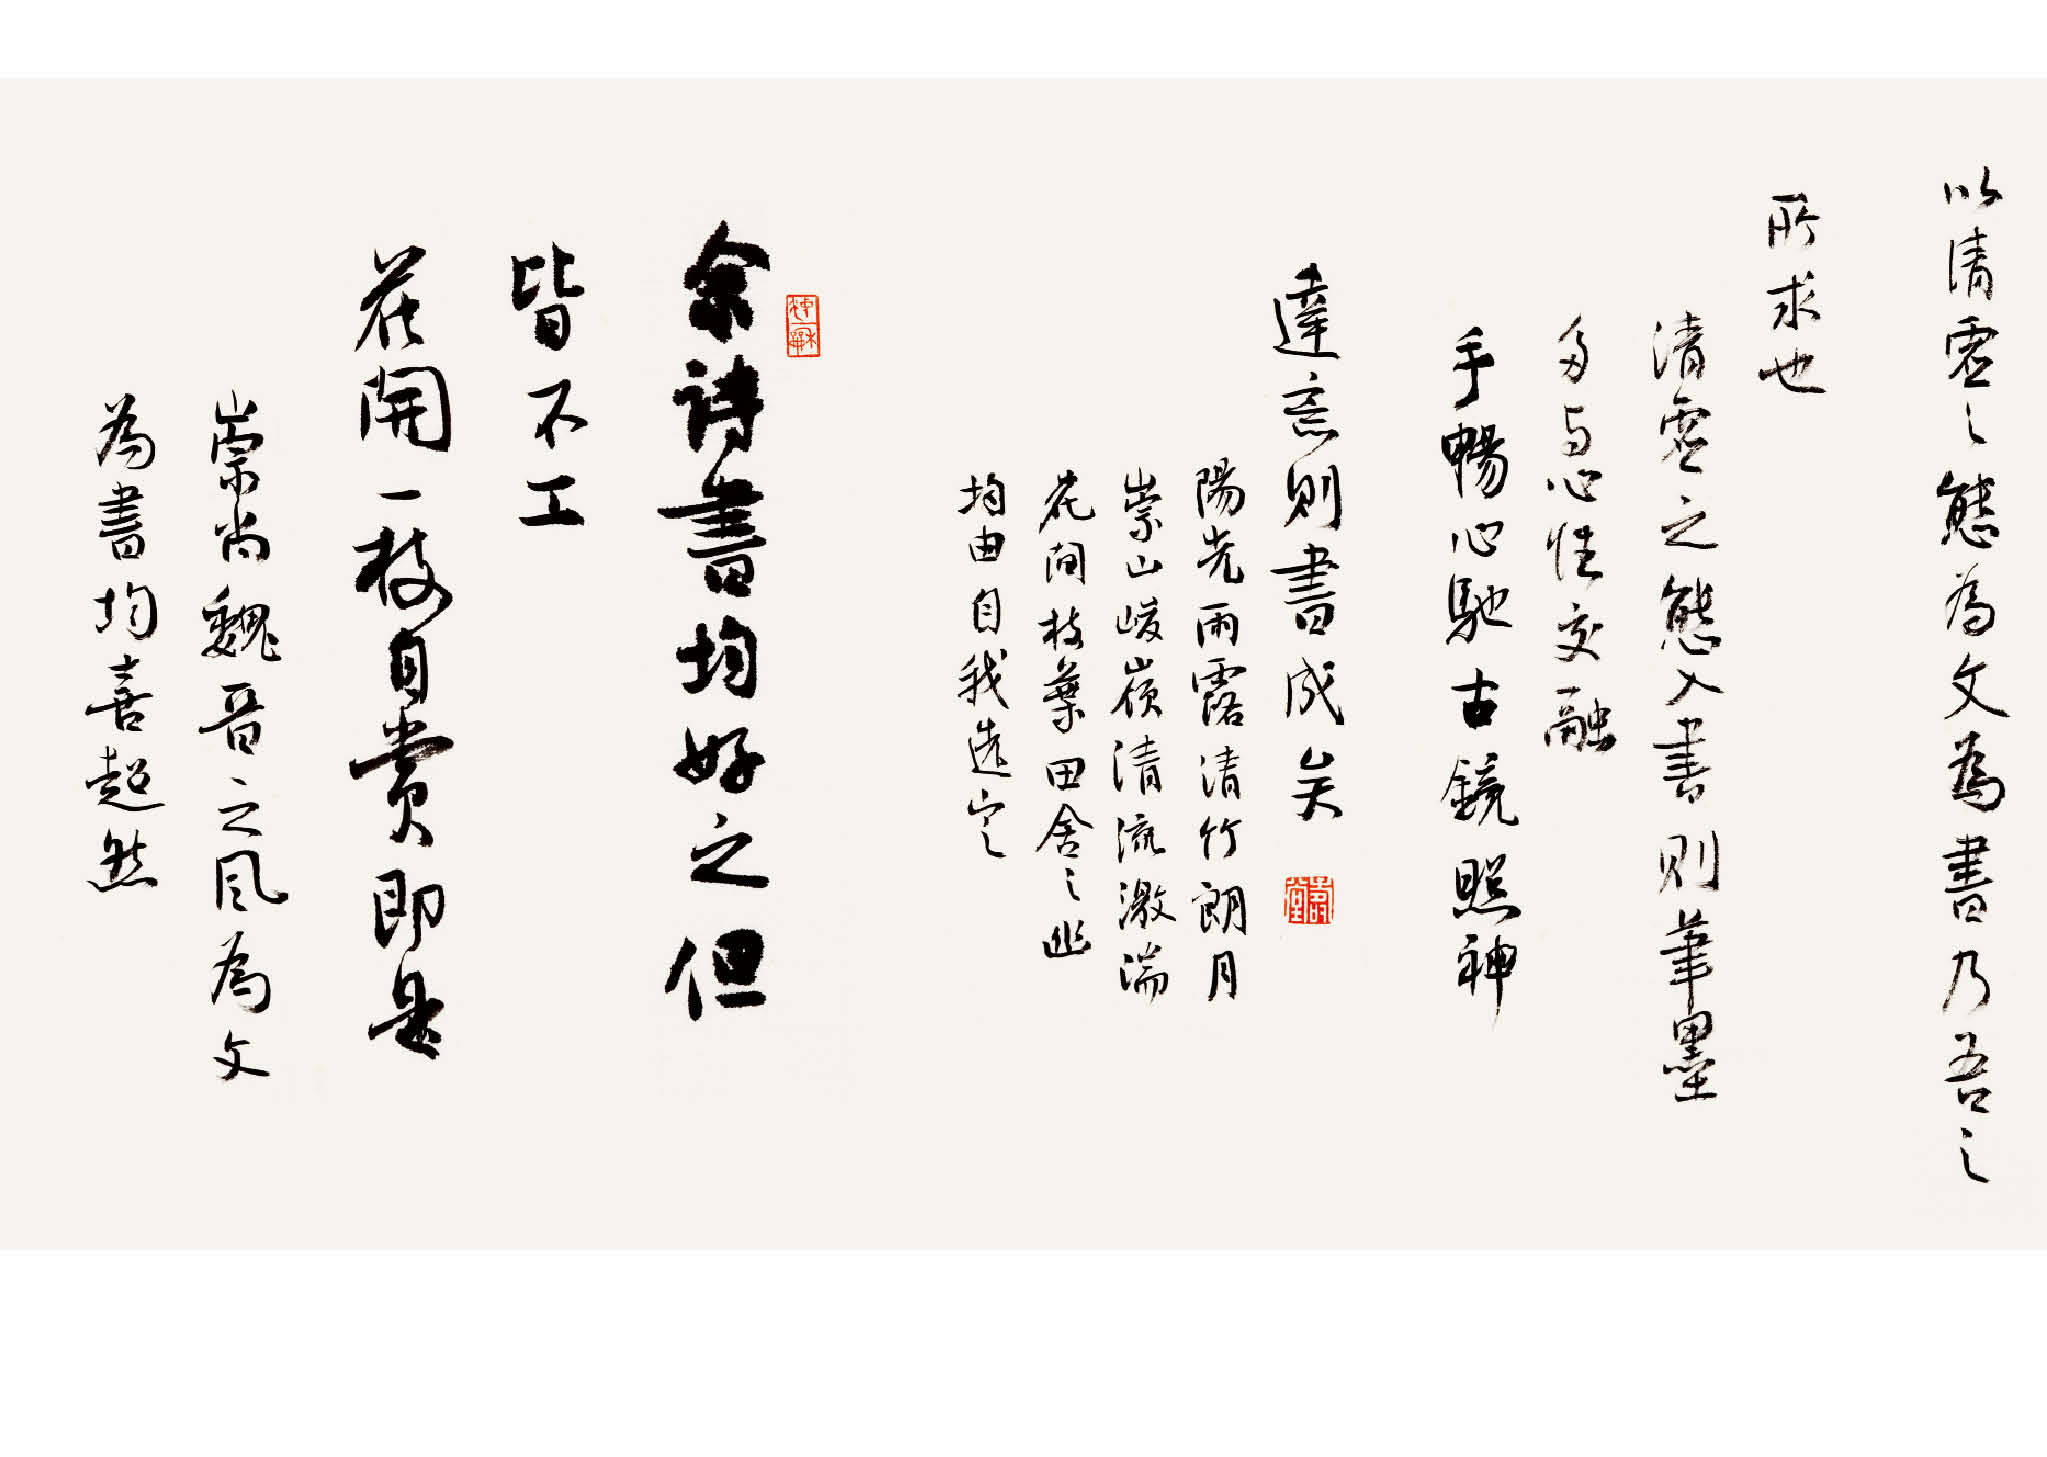 以清虚之態為文為書乃吾之
所求也
清虚之態入書則筆墨
多与心性交融
手暢心馳古鏡照神
達意則書成矣
陽光雨露清竹朗月
崇山峻嶺清流激湍
花間枝葉田舍之趣
均由自我造定
余詩書均好之但
皆不工
花開一枝自赏即是
崇尚魏晋之风為文
為書均喜超然